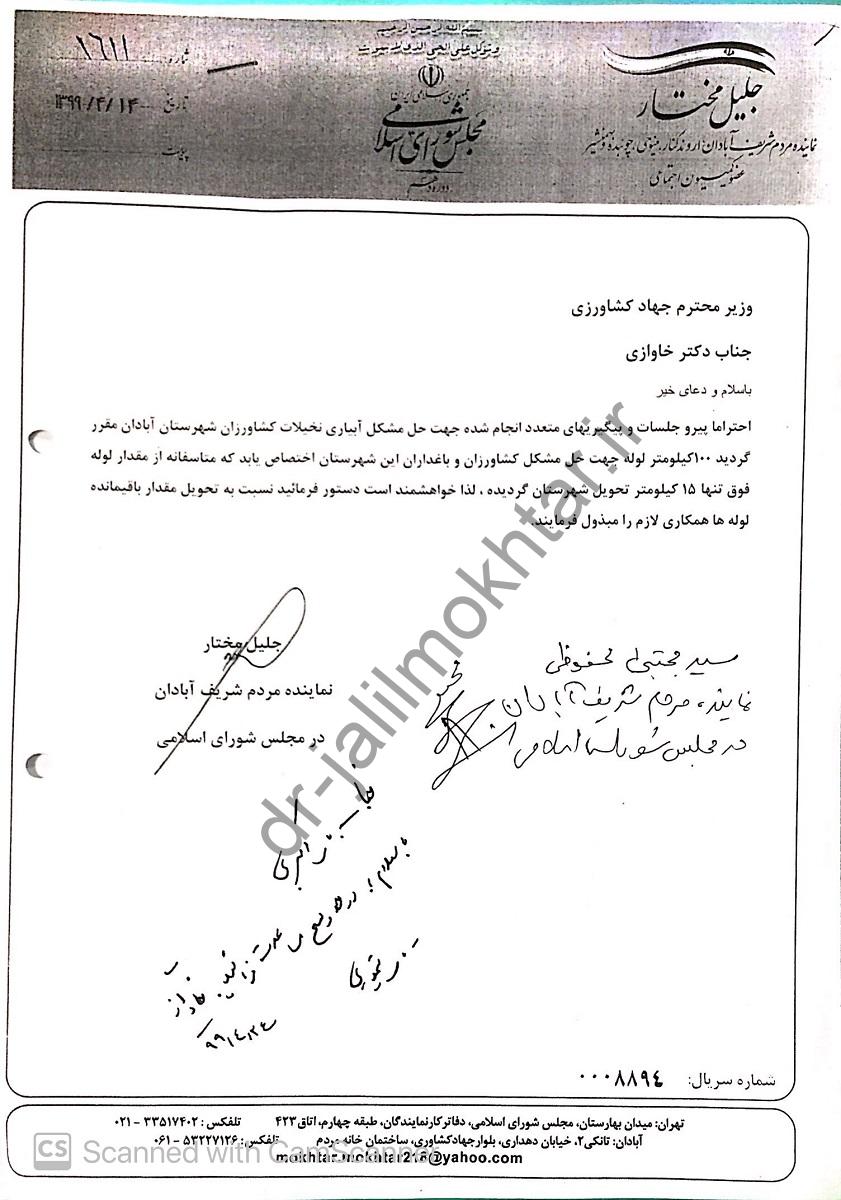 بسم الله الرحمن الرحیم
و توکل علی الحی الذی لا یموت
جمهوری اسلامی ایران
مجلس شورای اسلامی
دوره دهم
جلیل مختار
نماینده مردم شریف آبادان، اروندکنار، مینوئی، چوئبده و بهمنشیر
عضو کمیسیون اجتماعی
شماره: ۱۶۱۱
تاریخ ۱۳۹۹/۴/۱۴
پیوست
وزیر محترم جهاد کشاورزی
جناب دکتر خاوازی
باسلام و دعای خیر
احتراما پیرو جلسات و پیگیریهای متعدد انجام شده جهت حل مشکل آبیاری نخیلات کشاورزان شهرستان آبادان مقرر
گردید ۱۰۰کیلومتر لوله جهت حل مشکل کشاورزان و باغداران این شهرستان اختصاص یابد که متاسفانه از مقدار لوله
فوق تنها ۱۵ کیلومتر تحویل شهرستان گردیده ، لذا خواهشمند است دستور فرمائید نسبت به تحویل مقدار باقیمانده
لوله ها همکاری لازم را مبذول فرمایند.
جلیل مختار
نماینده مردم شریف آبادان
در مجلس شورای اسلامی
سید مجتبی محفوظی
نماینده مردم شریف آبادان
در مجلس شورای اسلامی
اکبری
با سلام
شماره سریال: ۰۰۰۸۸۹۴
تهران: میدان بهارستان، مجلس شورای اسلامی، دفاتر کارنمایندگان، طبقه چهارم، اتاق۴۲۳ تلفکس : ۳۳۵۱۷۴۰۲ - ۰۲۱
آبادان: تانکی۲، خیابان دهداری، بلوار جهادکشاورزی، ساختمان خانه مردم تلفکس : ۵۳۲۲۷۱۲۶ - ۰۶۱
mokhtar.mokhtar218@yahoo.com
dr-jalilmokhtar.ir
CS Scanned with CamScanner